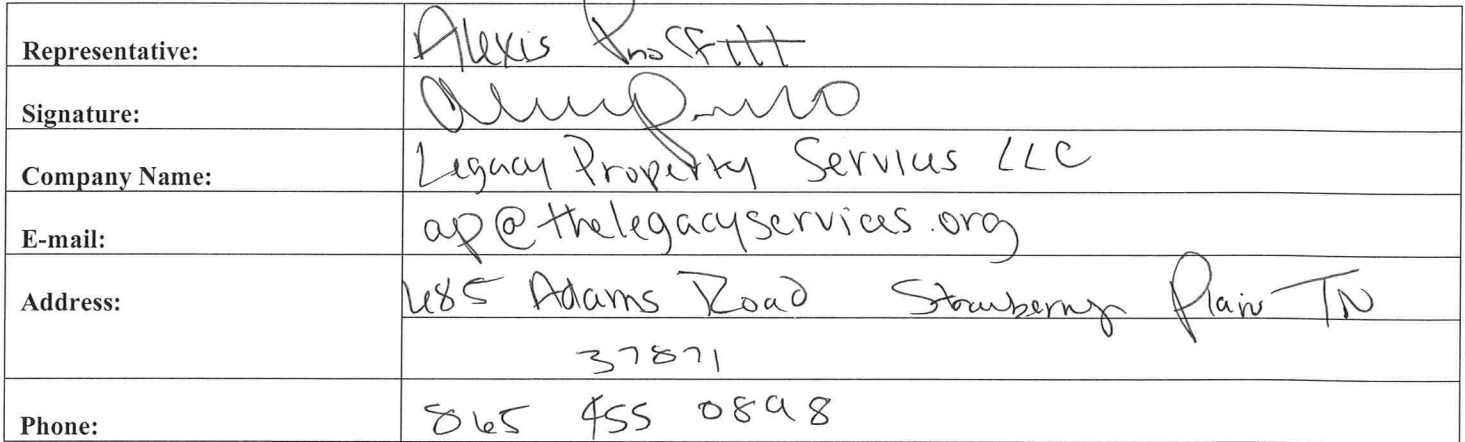 Representative: Alexis Proffitt
Signature:
Company Name: Legacy Property Services LLC
E-mail: ap@thelegacyservices.org
Address: 485 Adams Road Strawberry Plain TN
37871
Phone: 865 455 0898